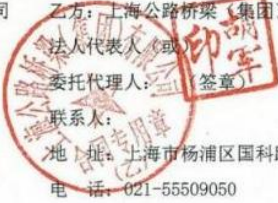 司 乙方：上海公路桥梁（集团）
法人代表人（或）
委托代理人：（签章）
联系人：
地 址：上海市杨浦区国科
电 话：021-55509050
公路桥梁（集团）有限公司
合同专用章
(乙)
印